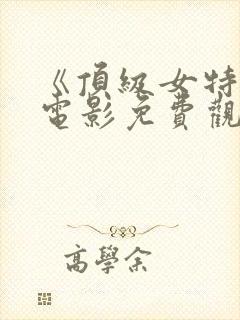 《頂級女特
電影免費觀
高學余